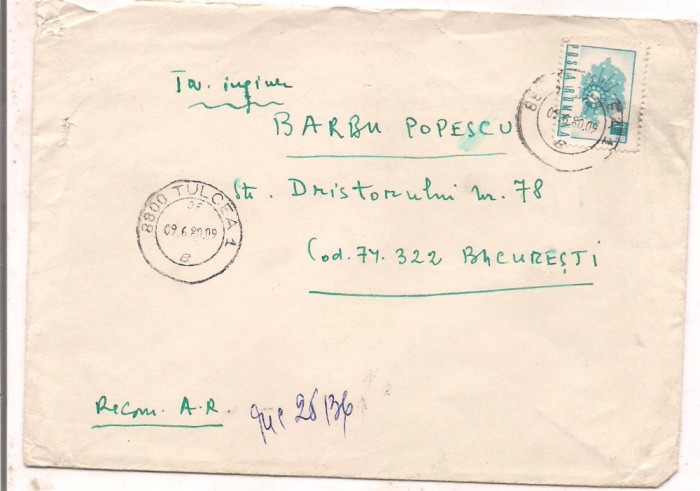 POSTA ROMANA
Tov. inginer
BARBU POPESCU
Str. Dristorului nr. 78
Cod. 74. 322 BUCUREȘTI
8800 TULCEA 1
09.6.80.09
B
09.6.80.09
B
Recom. A.R.